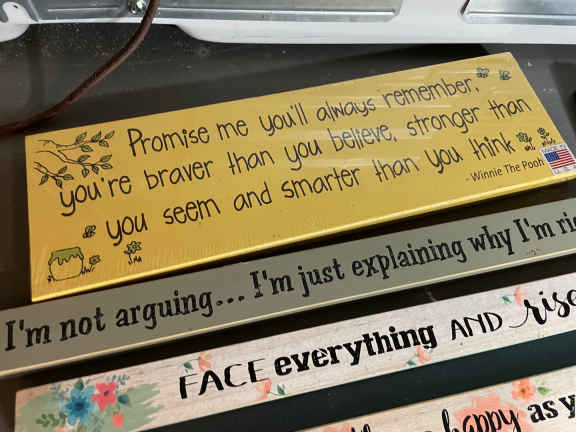 Promise me you'll always remember,
you're braver than you believe, stronger than
you seem and smarter than you think
- Winnie The Pooh
I'm not arguing... I'm just explaining why I'm
FACE everything AND rise
happy as